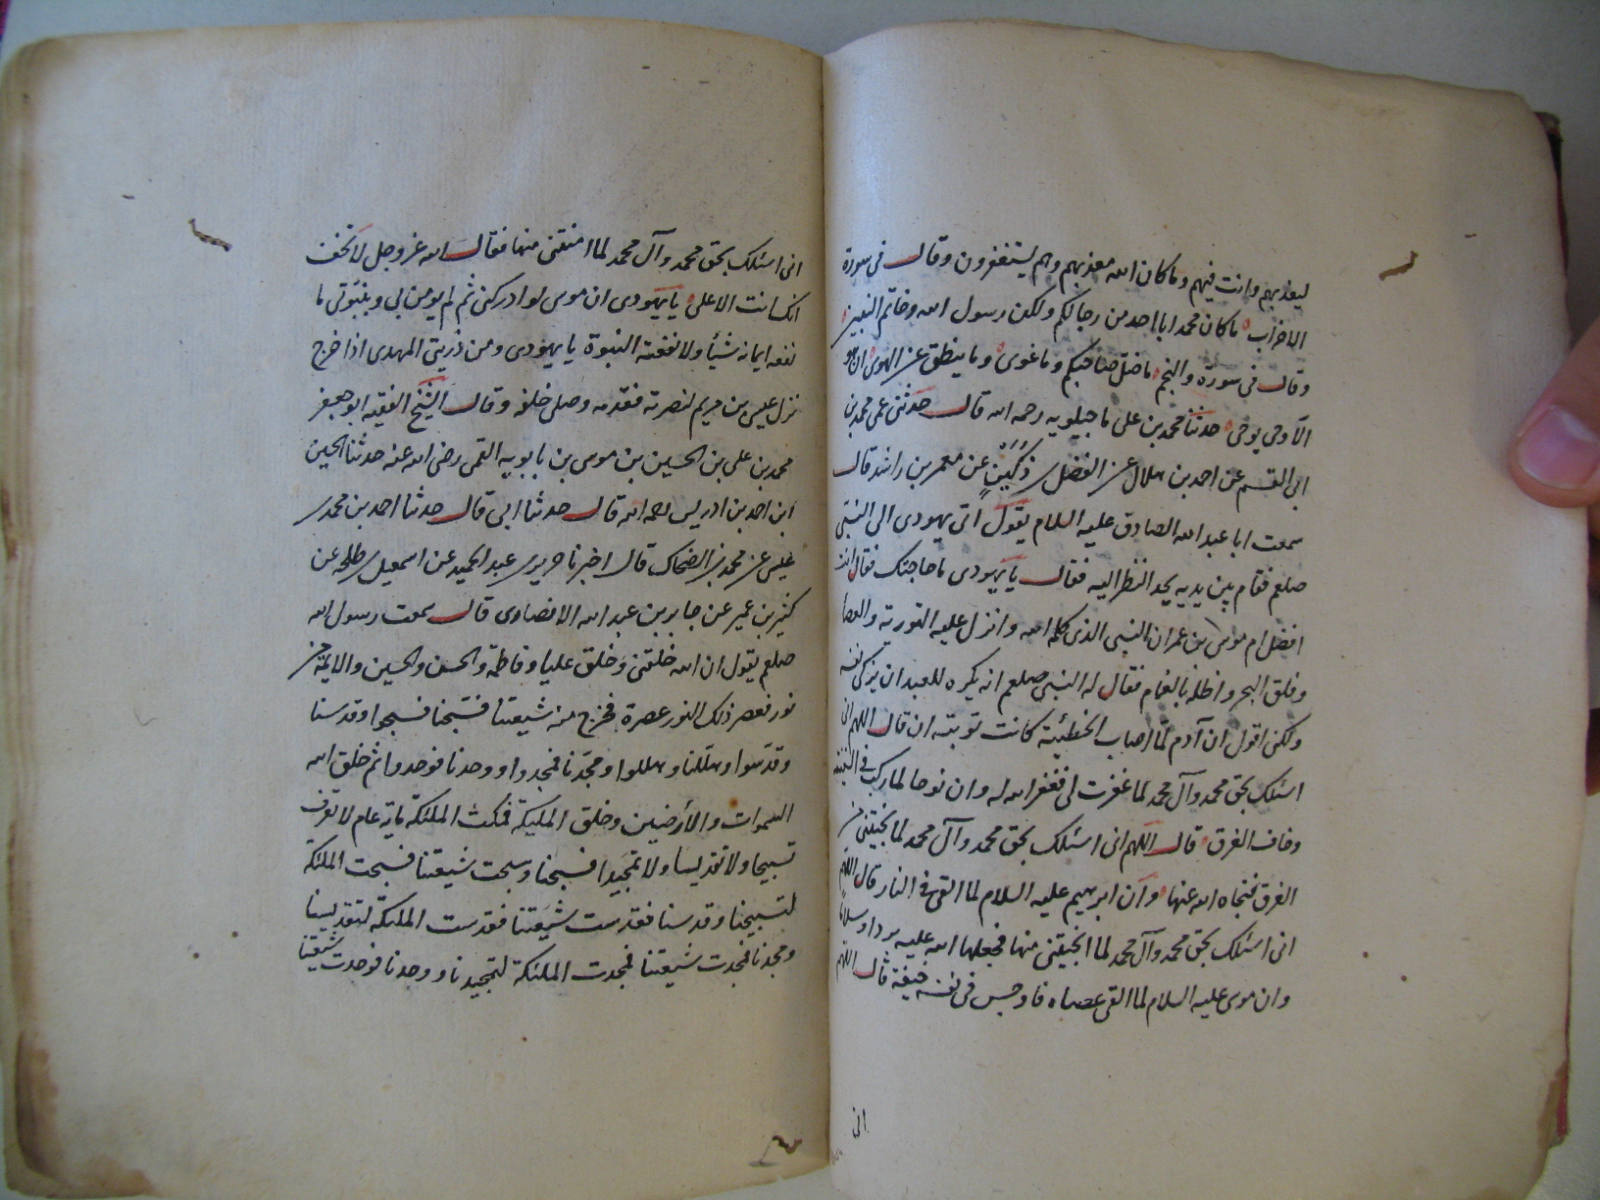 ليعذبهم وانت فيهم وما كان الله معذبهم وهم يستغفرون وقال في سورة
الاحزاب ما كان محمد ابا احد من رجالكم ولكن رسول الله وخاتم النبيين
وقال في سورة والنجم ما ضل صاحبكم وما غوى وما ينطق عن الهوى ان هو
الا وحى يوحى حدثنا محمد بن على ماجيلويه رحمه الله قال حدثنى عمى محمد بن
ابى القسم عن احمد بن هلال عن الفضل بن دكين عن معمر بن راشد قال
سمعت ابا عبد الله الصادق عليه السلام يقول اتى يهودى الى النبى
صلعم فقام بين يديه يحد النظر اليه فقال يا يهودى ما حاجتك فقال انت
افضل ام موسى بن عمران النبى الذى كلمه الله وانزل عليه التورية والعصا
وفلق البحر واظله بالغمام فقال له النبى صلعم انه يكره للعبد ان يزكى نفسه
ولكن اقول ان آدم لما اصاب الخطيئة كانت توبته ان قال اللهم انى
اسئلك بحق محمد وآل محمد لما غفرت لى فغفر الله له وان نوحا لما ركب فى السفينة
وخاف الغرق قال اللهم انى اسئلك بحق محمد وآل محمد لما نجيتنى من
الغرق فنجاه الله عنها وان ابرهيم عليه السلام لما القى فى النار قال اللهم
انى اسئلك بحق محمد وآل محمد لما انجيتنى منها فجعلها الله عليه بردا وسلاما
وان موسى عليه السلام لما القى عصاه فاوجس فى نفسه خيفة قال اللهم
انى
انى اسئلك بحق محمد وآل محمد لما امنتنى منها فقال الله عز وجل لا تخف
انك انت الاعلى يا يهودى ان موسى لو ادركنى ثم لم يومن بى وبنبوتى ما
نفعه ايمانه شيأ ولا نفعته النبوة يا يهودى ومن ذريتى المهدى اذا خرج
نزل عيسى بن مريم لنصرته فقدمه وصلى خلفه وقال الشيخ الفقيه ابو جعفر
محمد بن على بن الحسين بن موسى بن بابويه القمى رضى الله عنه حدثنا الحسين
ابن احمد بن ادريس رحمه الله قال حدثنا ابى قال حدثنا احمد بن محمد بن
عيسى عن محمد بن الضحاك قال اخبرنا عبد الحميد عن اسمعيل بن طلحه عن
كثير بن عمير عن جابر بن عبد الله الانصارى قال سمعت رسول الله
صلعم يقول ان الله خلقنى وخلق عليا وفاطمة والحسن والحسين والايمة من
نور فعصر ذلك النور عصرة فخرج منه شيعتنا فسبحنا فسبحوا وقدسنا
وقدسوا وهللنا وهللوا ومجدنا فمجدوا ووحدنا فوحدوا ثم خلق الله
السموات والأرضين وخلق المليكة فمكثت الملئكة ماية عام لا تعرف
تسبيحا ولا تقديسا ولا تمجيدا فسبحنا وسبحت شيعتنا فسبحت الملئكة
لتسبيحنا وقدسنا فقدست شيعتنا فقدست الملئكة لتقديسنا
ومجدنا فمجدت شيعتنا فمجدت الملئكة لتمجيدنا ووحدنا فوحدت شيعتنا